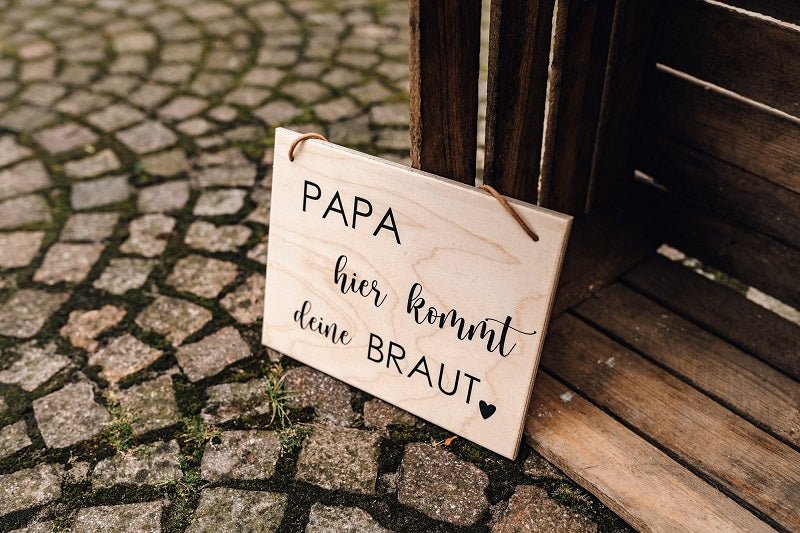 PAPA
hier kommt
deine BRAUT